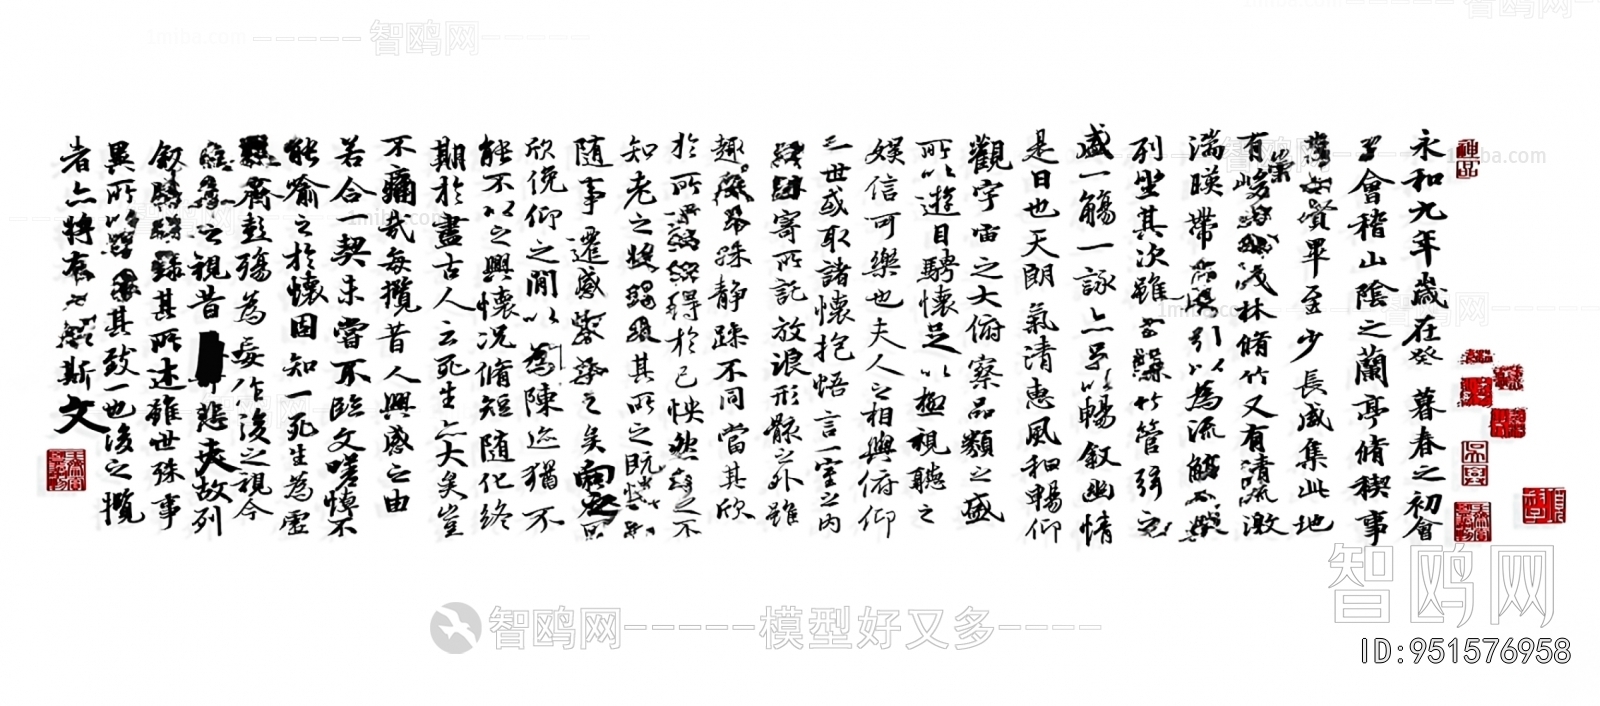 永和九年歲在癸 暮春之初會
會稽山陰之蘭亭脩稧事
賢畢至少長咸集此地
有崇峻 茂林脩竹又有清流激
湍暎帶 引以為流觴
列坐其次雖 管弦之
盛一觴一詠亦足以暢叙幽情
是日也天朗氣清惠風和暢仰
觀宇宙之大俯察品類之盛
所以遊目騁懷足以極視聽之
娛信可樂也夫人之相與俯仰
一世或取諸懷抱悟言一室之內
寄所託放浪形骸之外雖
趣 殊静躁不同當其欣
於所 得於己怏然 不
知老之将 其所之既
随事遷感 之矣向之
欣俛仰之閒以為陳迹猶不
能不以之興懷況脩短随化終
期於盡古人云死生亦大矣豈
不痛哉每攬昔人興感之由
若合 契未嘗不臨文嗟悼不
能喻之於懷固知一死生為虛
齊彭殤為妄作後之視今
之視昔 悲夫故列
叙 錄其所述雖世殊事
異所以 其致一也後之攬
者亦将有 斯文
智鸥网-----模型好又多----
智鸥网
ID:951576958
1miba.com